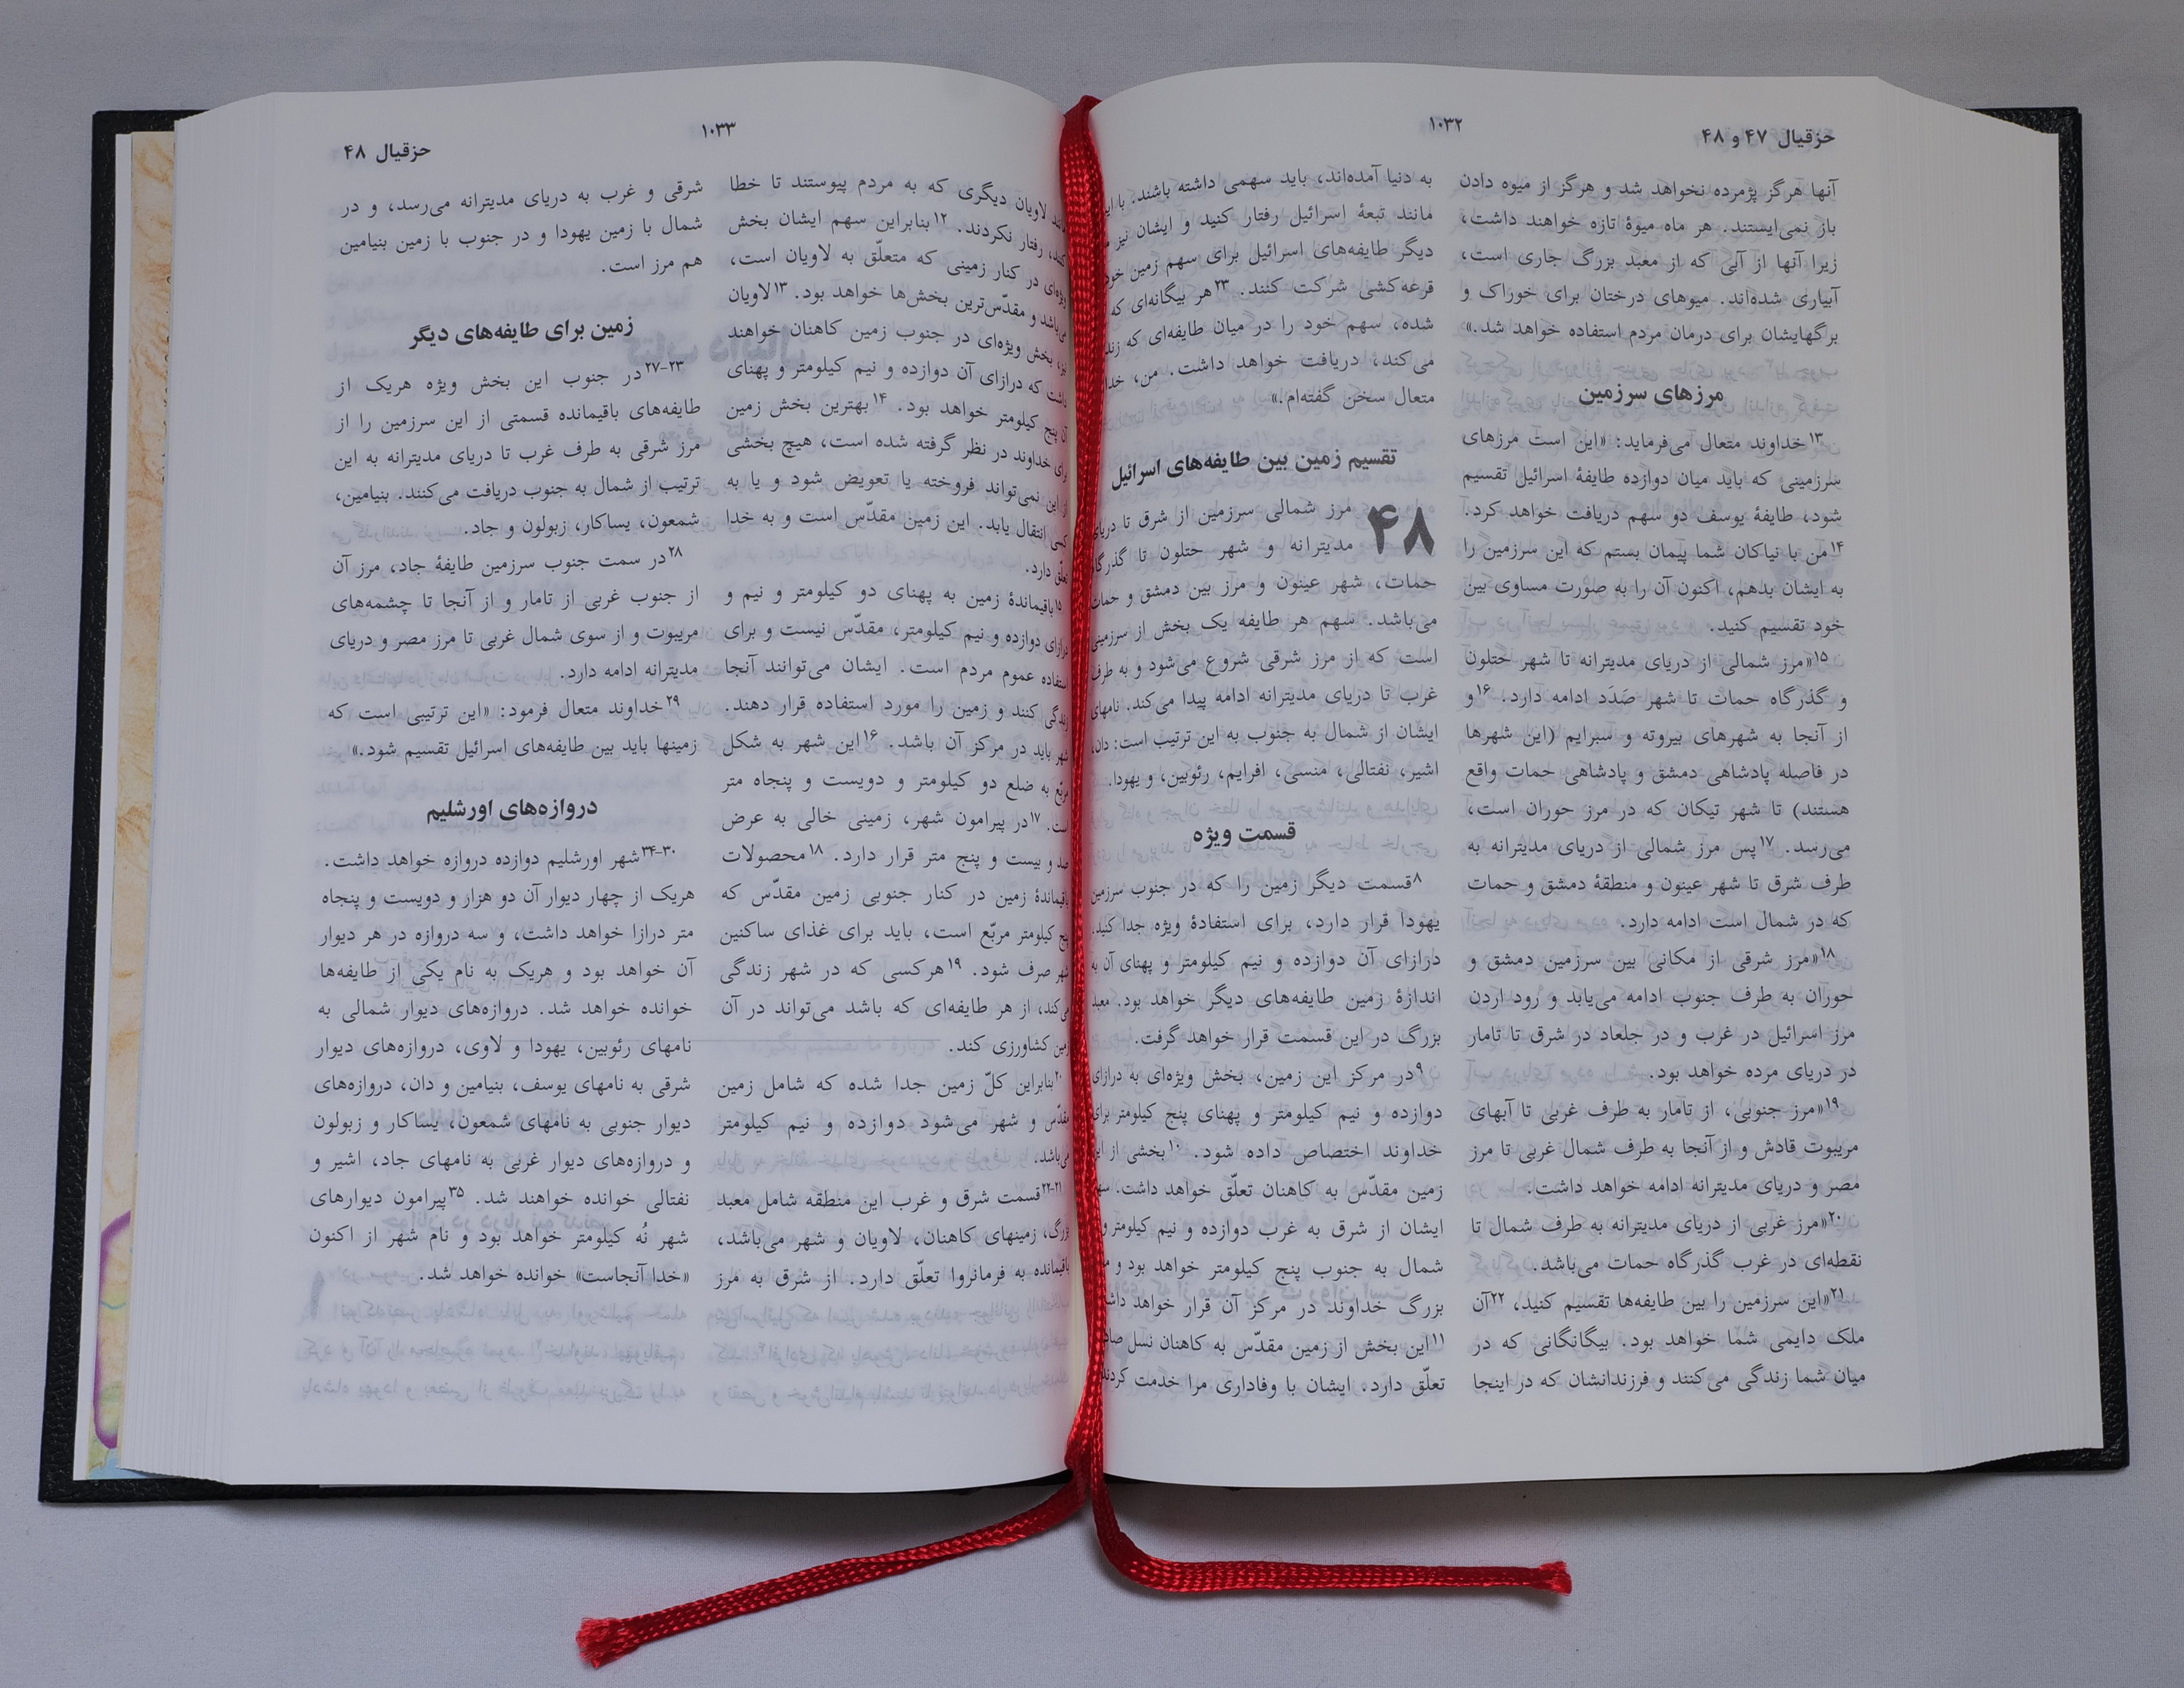 حزقیال ۴۷ و ۴۸
۱۰۳۲
آنها هرگز پژمرده نخواهد شد و هرگز از میوه دادن
باز نمی‌ایستند. هر ماه میوهٔ تازه خواهند داشت،
زیرا آنها از آبی که از معبد بزرگ جاری است،
آبیاری شده‌اند. میوهای درختان برای خوراک و
برگهایشان برای درمان مردم استفاده خواهد شد.»
مرزهای سرزمین
۱۳خداوند متعال می‌فرماید: «این است مرزهای
سرزمینی که باید میان دوازده طایفهٔ اسرائیل تقسیم
شود، طایفهٔ یوسف دو سهم دریافت خواهد کرد.
۱۴من با نیاکان شما پیمان بستم که این سرزمین را
به ایشان بدهم، اکنون آن را به صورت مساوی بین
خود تقسیم کنید.
۱۵«مرز شمالی از دریای مدیترانه تا شهر حتلون
و گذرگاه حمات تا شهر صَدَد ادامه دارد. ۱۶و
از آنجا به شهرهای بیروته و سبرایم (این شهرها
در فاصله پادشاهی دمشق و پادشاهی حمات واقع
هستند) تا شهر تیکان که در مرز حوران است،
می‌رسد. ۱۷پس مرز شمالی از دریای مدیترانه به
طرف شرق تا شهر عینون و منطقهٔ دمشق و حمات
که در شمال است ادامه دارد.
۱۸«مرز شرقی از مکانی بین سرزمین دمشق و
حوران به طرف جنوب ادامه می‌یابد و رود اردن
مرز اسرائیل در غرب و در جلعاد در شرق تا تامار
در دریای مرده خواهد بود.
۱۹«مرز جنوبی، از تامار به طرف غربی تا آبهای
مریبوت قادش و از آنجا به طرف شمال غربی تا مرز
مصر و دریای مدیترانه ادامه خواهد داشت.
۲۰«مرز غربی از دریای مدیترانه به طرف شمال تا
نقطه‌ای در غرب گذرگاه حمات می‌باشد.
۲۱«این سرزمین را بین طایفه‌ها تقسیم کنید، ۲۲آن
ملک دایمی شما خواهد بود. بیگانگانی که در
میان شما زندگی می‌کنند و فرزندانشان که در اینجا
به دنیا آمده‌اند، باید سهمی داشته باشند.
مانند تبعهٔ اسرائیل رفتار کنید و ایشان نیز
دیگر طایفه‌های اسرائیل برای سهم زمین خود
قرعه‌کشی شرکت کنند. ۲۳هر بیگانه‌ای که
شده، سهم خود را در میان طایفه‌ای که
می‌کند، دریافت خواهد داشت. من،
متعال سخن گفته‌ام.»
تقسیم زمین بین طایفه‌های اسرائیل
۴۸ مرز شمالی سرزمین از شرق تا دریای
مدیترانه و شهر حتلون تا گذرگاه
حمات، شهر عینون و مرز بین دمشق و حمات
می‌باشد. سهم هر طایفه یک بخش از سرزمینی
است که از مرز شرقی شروع می‌شود و به طرف
غرب تا دریای مدیترانه ادامه پیدا می‌کند. نامهای
ایشان از شمال به جنوب به این ترتیب است: دان،
اشیر، نفتالی، منسی، افرایم، رئوبین، و یهودا.
قسمت ویژه
۸قسمت دیگر زمین را که در جنوب سرزمین
یهودا قرار دارد، برای استفادهٔ ویژه جدا کنید.
درازای آن دوازده و نیم کیلومتر و پهنای آن به
اندازهٔ زمین طایفه‌های دیگر خواهد بود. معبد
بزرگ در این قسمت قرار خواهد گرفت.
۹در مرکز این زمین، بخش ویژه‌ای به درازای
دوازده و نیم کیلومتر و پهنای پنج کیلومتر برای
خداوند اختصاص داده شود. ۱۰بخشی از این
زمین مقدّس به کاهنان تعلّق خواهد داشت.
ایشان از شرق به غرب دوازده و نیم کیلومتر و
شمال به جنوب پنج کیلومتر خواهد بود و
بزرگ خداوند در مرکز آن قرار خواهد
۱۱این بخش از زمین مقدّس به کاهنان نسل
تعلّق دارد. ایشان با وفاداری مرا خدمت کردند
۱۰۳۳
حزقیال ۴۸
لاویان دیگری که به مردم پیوستند تا خطا
رفتار نکردند. ۱۲بنابراین سهم ایشان بخش
ویژه‌ای در کنار زمینی که متعلّق به لاویان است،
می‌باشد و مقدّس‌ترین بخش‌ها خواهد بود. ۱۳لاویان
نیز، بخش ویژه‌ای در جنوب زمین کاهنان خواهند
داشت که درازای آن دوازده و نیم کیلومتر و پهنای
آن پنج کیلومتر خواهد بود. ۱۴بهترین بخش زمین
برای خداوند در نظر گرفته شده است، هیچ بخشی
از این نمی‌تواند فروخته یا تعویض شود و یا به
کسی انتقال یابد. این زمین مقدّس است و به خدا
تعلّق دارد.
۱۵باقیماندهٔ زمین به پهنای دو کیلومتر و نیم و
درازای دوازده و نیم کیلومتر، مقدّس نیست و برای
استفاده عموم مردم است. ایشان می‌توانند آنجا
زندگی کنند و زمین را مورد استفاده قرار دهند.
شهر باید در مرکز آن باشد. ۱۶این شهر به شکل
مربّع به ضلع دو کیلومتر و دویست و پنجاه متر
است. ۱۷در پیرامون شهر، زمینی خالی به عرض
صد و بیست و پنج متر قرار دارد. ۱۸محصولات
باقیماندهٔ زمین در کنار جنوبی زمین مقدّس که
پنج کیلومتر مربّع است، باید برای غذای ساکنین
شهر صرف شود. ۱۹هرکسی که در شهر زندگی
می‌کند، از هر طایفه‌ای که باشد می‌تواند در آن
زمین کشاورزی کند.
۲۰بنابراین کلّ زمین جدا شده که شامل زمین
مقدّس و شهر می‌شود دوازده و نیم کیلومتر
می‌باشد.
۲۱-۲۲قسمت شرق و غرب این منطقه شامل معبد
بزرگ، زمینهای کاهنان، لاویان و شهر می‌باشد،
باقیمانده به فرمانروا تعلّق دارد. از شرق به مرز
شرقی و غرب به دریای مدیترانه می‌رسد، و در
شمال با زمین یهودا و در جنوب با زمین بنیامین
هم مرز است.
زمین برای طایفه‌های دیگر
۲۳-۲۷در جنوب این بخش ویژه هریک از
طایفه‌های باقیمانده قسمتی از این سرزمین را از
مرز شرقی به طرف غرب تا دریای مدیترانه به این
ترتیب از شمال به جنوب دریافت می‌کنند. بنیامین،
شمعون، یساکار، زبولون و جاد.
۲۸در سمت جنوب سرزمین طایفهٔ جاد، مرز آن
از جنوب غربی از تامار و از آنجا تا چشمه‌های
مریبوت و از سوی شمال غربی تا مرز مصر و دریای
مدیترانه ادامه دارد.
۲۹خداوند متعال فرمود: «این ترتیبی است که
زمینها باید بین طایفه‌های اسرائیل تقسیم شود.»
دروازه‌های اورشلیم
۳۰-۳۴شهر اورشلیم دوازده دروازه خواهد داشت.
هریک از چهار دیوار آن دو هزار و دویست و پنجاه
متر درازا خواهد داشت، و سه دروازه در هر دیوار
آن خواهد بود و هریک به نام یکی از طایفه‌ها
خوانده خواهد شد. دروازه‌های دیوار شمالی به
نامهای رئوبین، یهودا و لاوی، دروازه‌های دیوار
شرقی به نامهای یوسف، بنیامین و دان، دروازه‌های
دیوار جنوبی به نامهای شمعون، یساکار و زبولون
و دروازه‌های دیوار غربی به نامهای جاد، اشیر و
نفتالی خوانده خواهند شد. ۳۵پیرامون دیوارهای
شهر نُه کیلومتر خواهد بود و نام شهر از اکنون
«خدا آنجاست» خوانده خواهد شد.